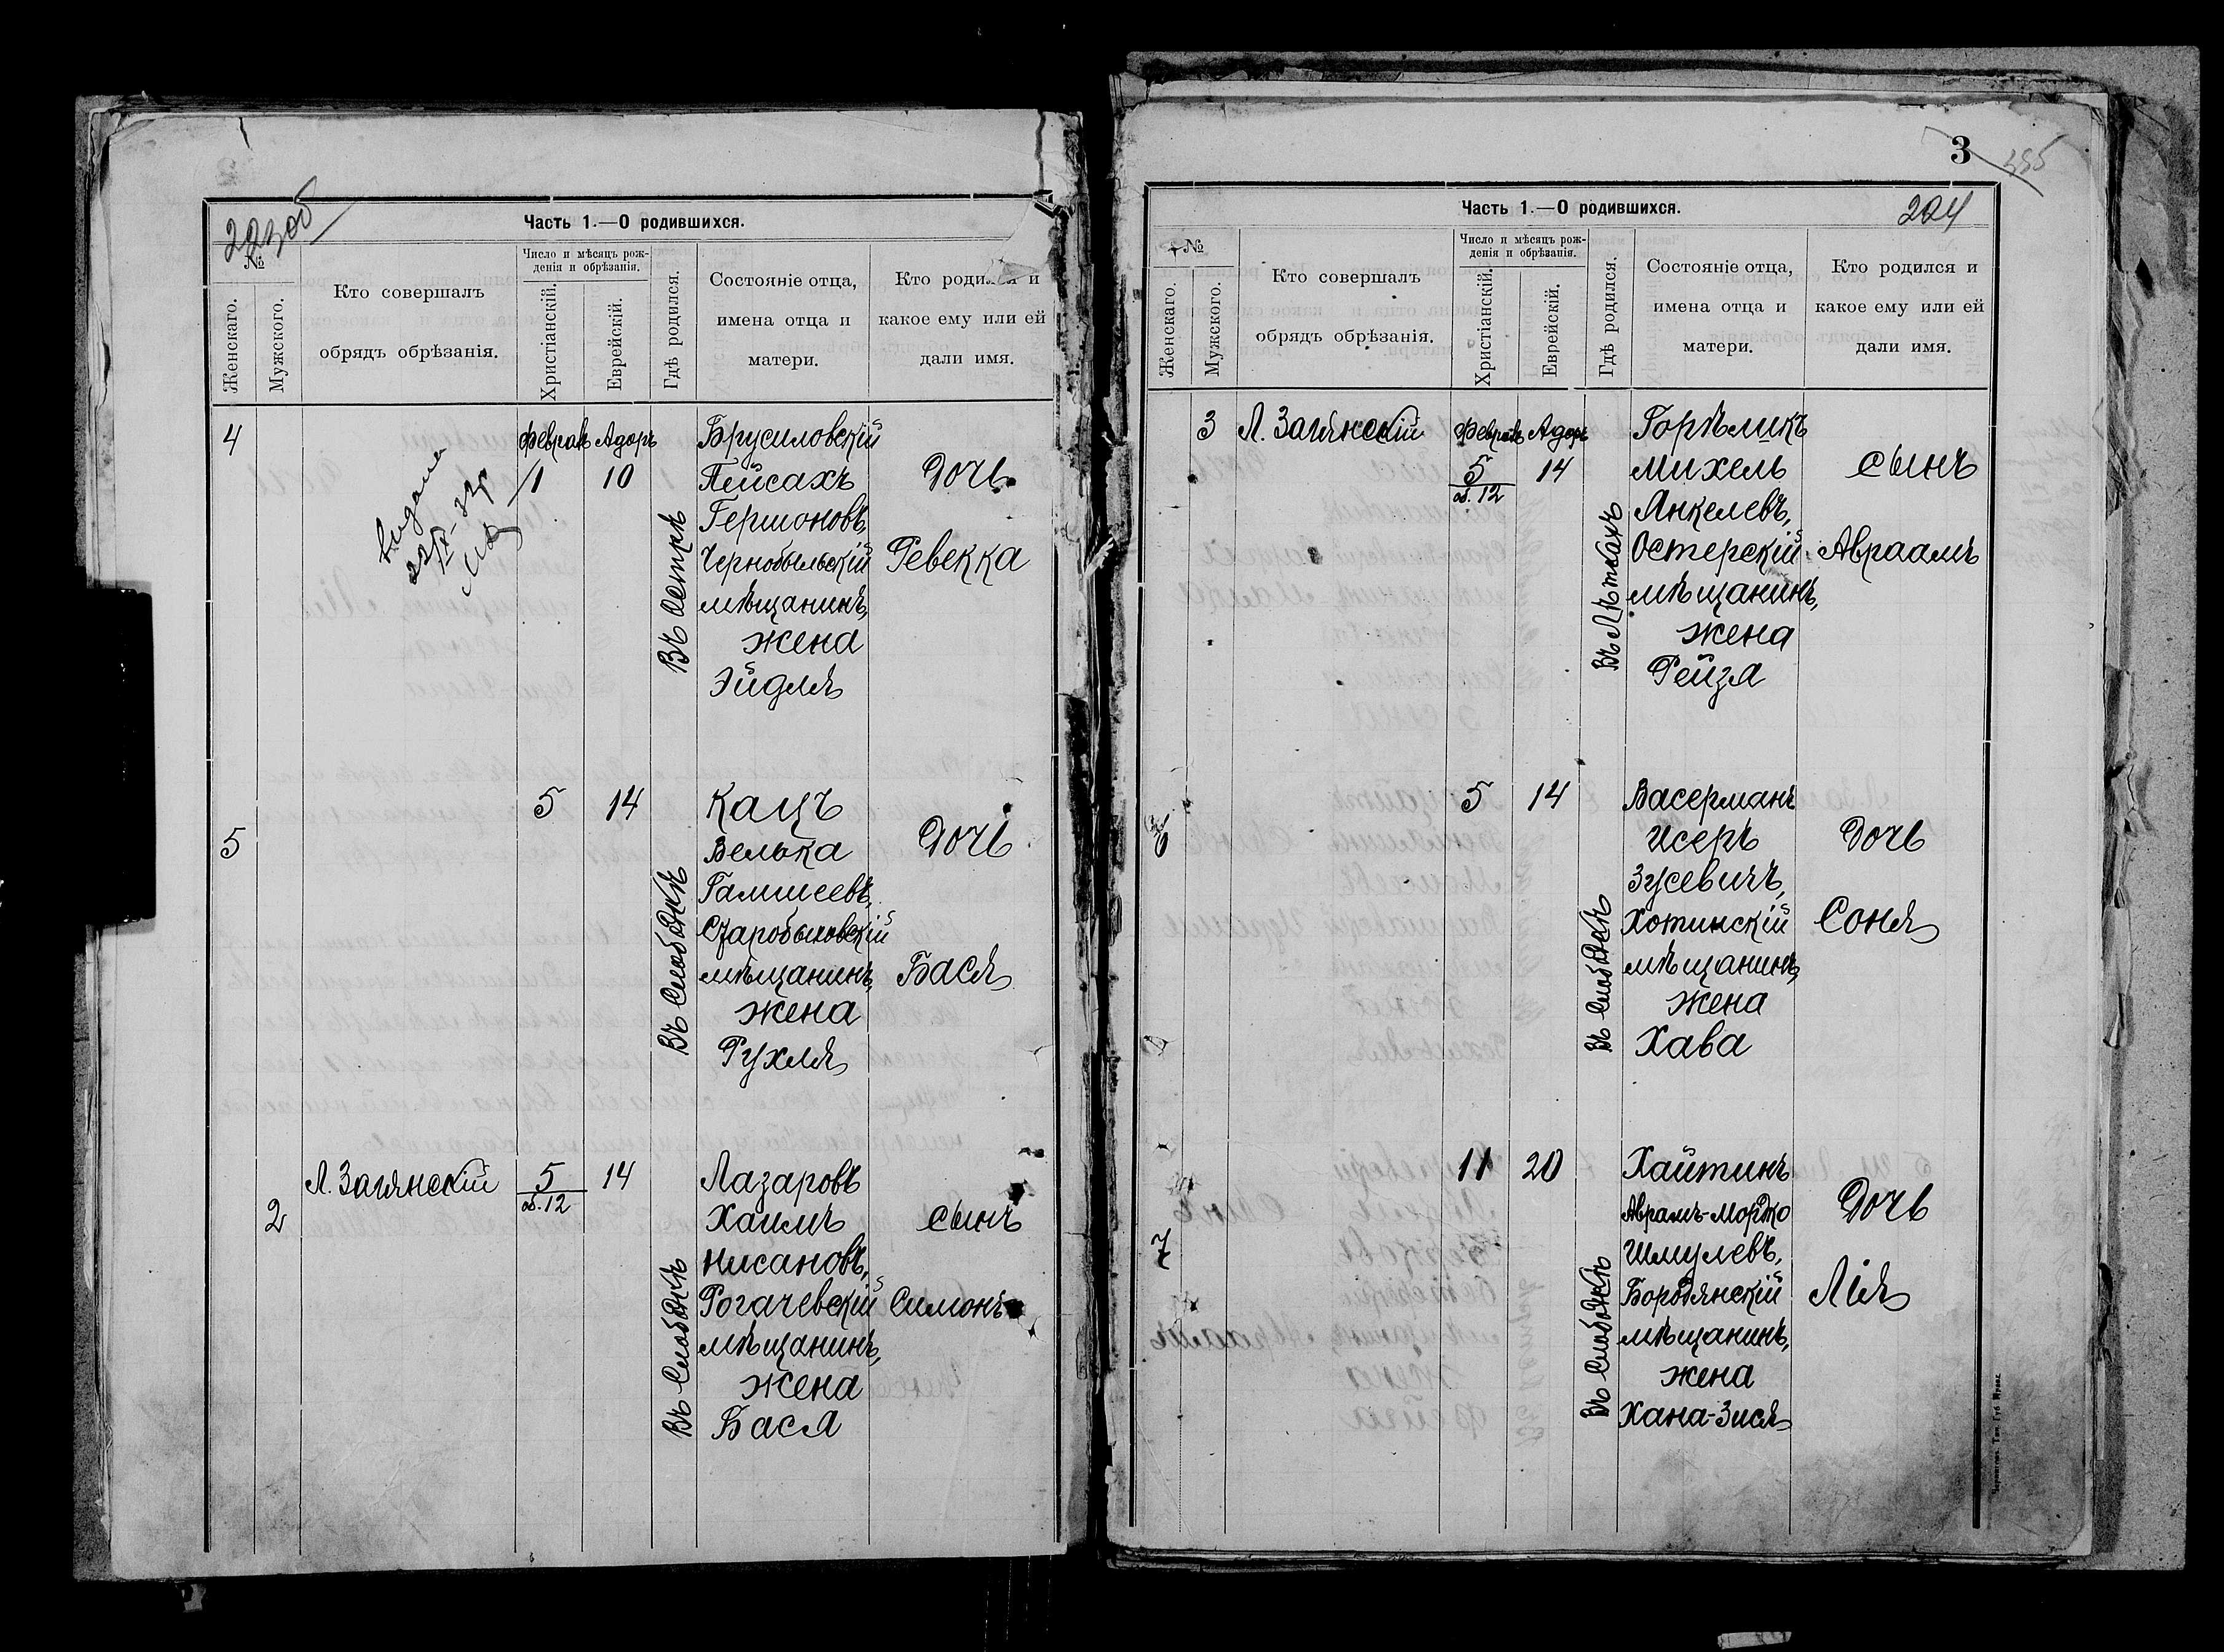 223об
Часть 1.—О родившихся.
№
Женскаго.
Мужского.
Кто совершалъ
обрядъ обрѣзанія.
Число и мѣсяцъ рож-
денія и обрѣзанія.
Христіанскій.
Еврейскій.
Гдѣ родился.
Состояніе отца,
имена отца и
матери.
Кто родился и
какое ему или ей
дали имя.
4
Февраль Адоръ
1 10
Въ Остре
Брусиловскій
Пейсахъ
Гершоновъ,
Чернобыльскій
мѣщанинъ,
жена
Эйдля
Дочь
Ревекка
5
5 14
Въ Слободкѣ
Кацъ
Велька
Гамшеевъ,
Старобыховскій
мѣщанинъ,
жена
Рухля
Дочь
Бася
2
Л. Заглянскій
5 14
об. 12
Въ Слободкѣ
Лазаровъ
Хаимъ
Нисановъ,
Рогачевскій
мѣщанинъ,
жена
Бася
сынъ
Симонъ
3
355
224
Часть 1.—О родившихся.
№
Женскаго.
Мужского.
Кто совершалъ
обрядъ обрѣзанія.
Число и мѣсяцъ рож-
денія и обрѣзанія.
Христіанскій.
Еврейскій.
Гдѣ родился.
Состояніе отца,
имена отца и
матери.
Кто родился и
какое ему или ей
дали имя.
3
Л. Заглянскій
Февраль Адоръ
5 14
об. 12
Въ Лѣткахъ
Горѣликъ
Михель
Янкелевъ,
Остерскій
мѣщанинъ,
жена
Рейзя
сынъ
Авраамъ
6
5 14
Въ Слободкѣ
Васерманъ
Исеръ
Зусевичъ,
Хотинскій
мѣщанинъ,
жена
Хава
Дочь
Соня
7
11 20
Въ Слободкѣ
Хайтинъ
Аврамъ-Мордко
Шмулевъ,
Бородянскій
мѣщанинъ,
жена
Хана-Зися
Дочь
Лія